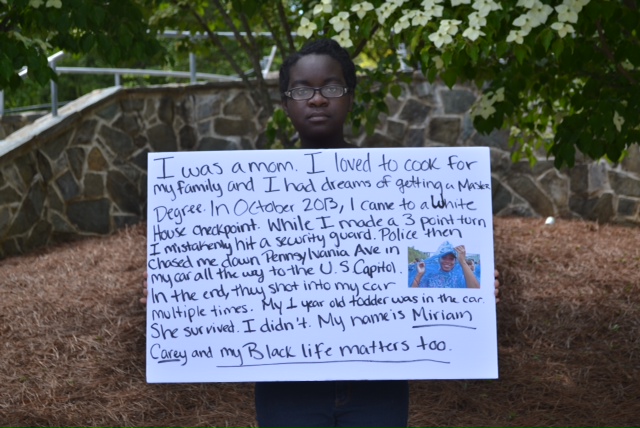 I was a mom. I loved to cook for
my family and I had dreams of getting a Master
Degree. In October 2013, I came to a White
House Checkpoint. While I made a 3 point turn
I mistakenly hit a security guard. Police then
chased me down Pennsylvania Ave in
my car all the way to the U.S Capitol.
In the end, they shot into my car
multiple times. My 1 year old toddler was in the car.
She survived. I didn't. My name is Miriam
Carey and my Black life matters too.